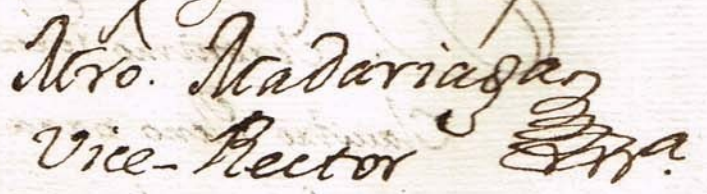 Mro. Madariaga
Vice-Rector